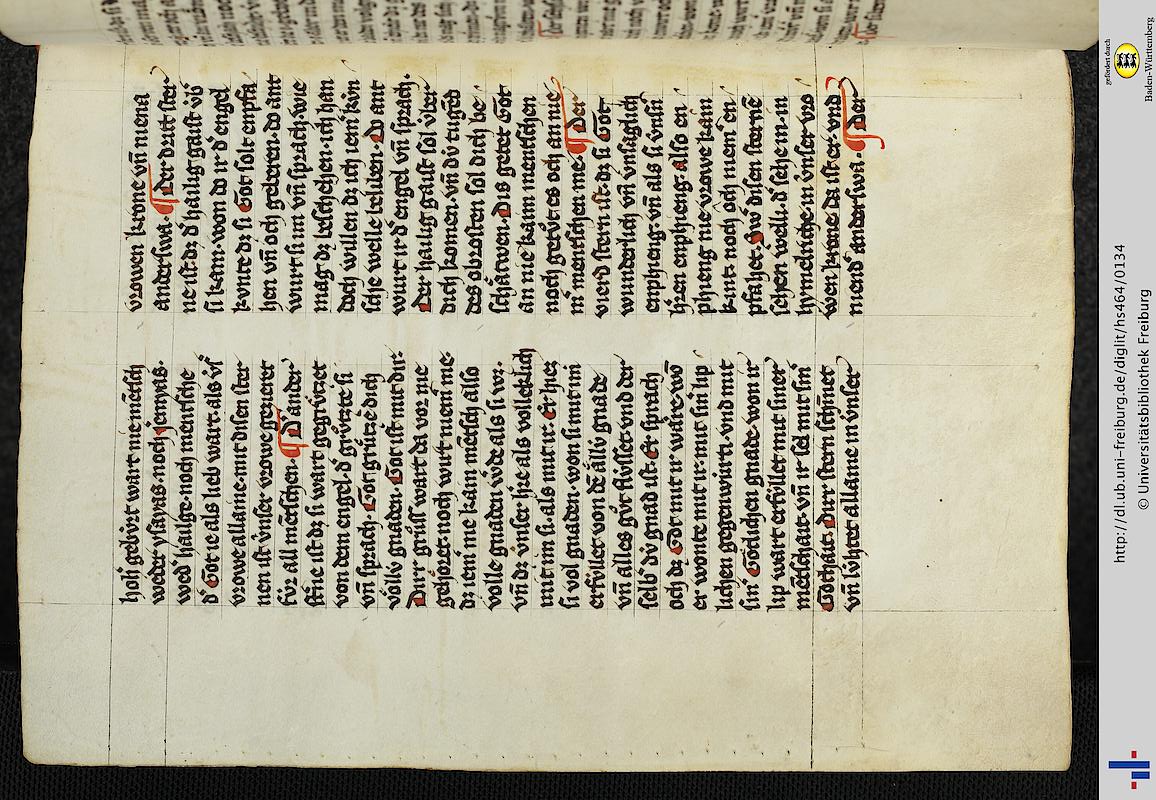 hoh gebúrt wart nie mẽtsch
weder ysayas · noch jemyas ·
wed᾽ hailge · noch mentsche
d᾽ Got ie als lieb wart · als v́ſ
vrowe allaine · mit disen ster
nen ist v́nser vrowe gezieret
fúr all mẽtschen · ¶ D᾽ ander
st᾽ne ist dz si wart gegrv́tzet
von dem engel · d᾽ grv́tzte si
vñ sprach · Got grv́tze dich
völlv́ gnaden · Got ist mit dir ·
Dirr grůss wart da vor nie
gehöret · noch wirt niem̃ me ·
dz iem̃ me kain mẽtsch also
volle gnaden w᾽de als si wz ·
vñ dz v́nser h᾽re als volleklich
mit im si · als mit ir · Er hiez
si vol gnaden · won si mit im
erfv́llet · von dẽ ällv́ gnade
vñ alles gůt flússet · vnd der
selb dv́ gnad ist · Er sprach
och dz Got mit ir wäre · wõ
er wonte mit ir · mit sim lip
lichen gegenwúrti · vnd mit
sinr Götlichen gnade · won ir
lip wart erfv́llet mit siner
mẽtschait · vñ ir sel mit sinr
Gothait · Dirr stern schinet
vñ lúhtet allaine in v́nser
vrowen krone vñ niena
anderswa · ¶ Der dritt ster
ne ist · dz d᾽ hailig gaist v́b᾽
si kam · won do ir d᾽ engel
kvnte dz si Got solt empfa
hen vñ och geberen · do ant
wurt si im vñ sprach · wie
mag dz beschehen · ich han
doch willen dz ich iem̃ kún
sche welle beliben · Do ant
wurt ir d᾽ engel vñ sprach ·
Der hailig gaist sol v́ber
dich komen · vñ dv́ tugẽd
des obrosten sol dich be
schätwen · Dis geret Got
an nie kain mentschen
noch getůt es och an nie
m᾽ mentschen me · ¶ Der
vierd stern ist · dz si Got
wunderlich vñ vnsaglich
enphieng · vñ als si v́nsñ
h᾽ren enphieng · also en
phieng nie vrowe kain
kint · noch och niem᾽ en
pfahet · Sw᾽ disen sternẽ
sehen welli · d᾽ sehe in · in
hymelriche · in v́nser vro
wen krone da ist er · vnd
niend᾽ anderswa · ¶ Der
gefördert durch
Baden-Württemberg
http://dl.ub.uni-freiburg.de/diglit/hs464/0134
© Universitätsbibliothek Freiburg